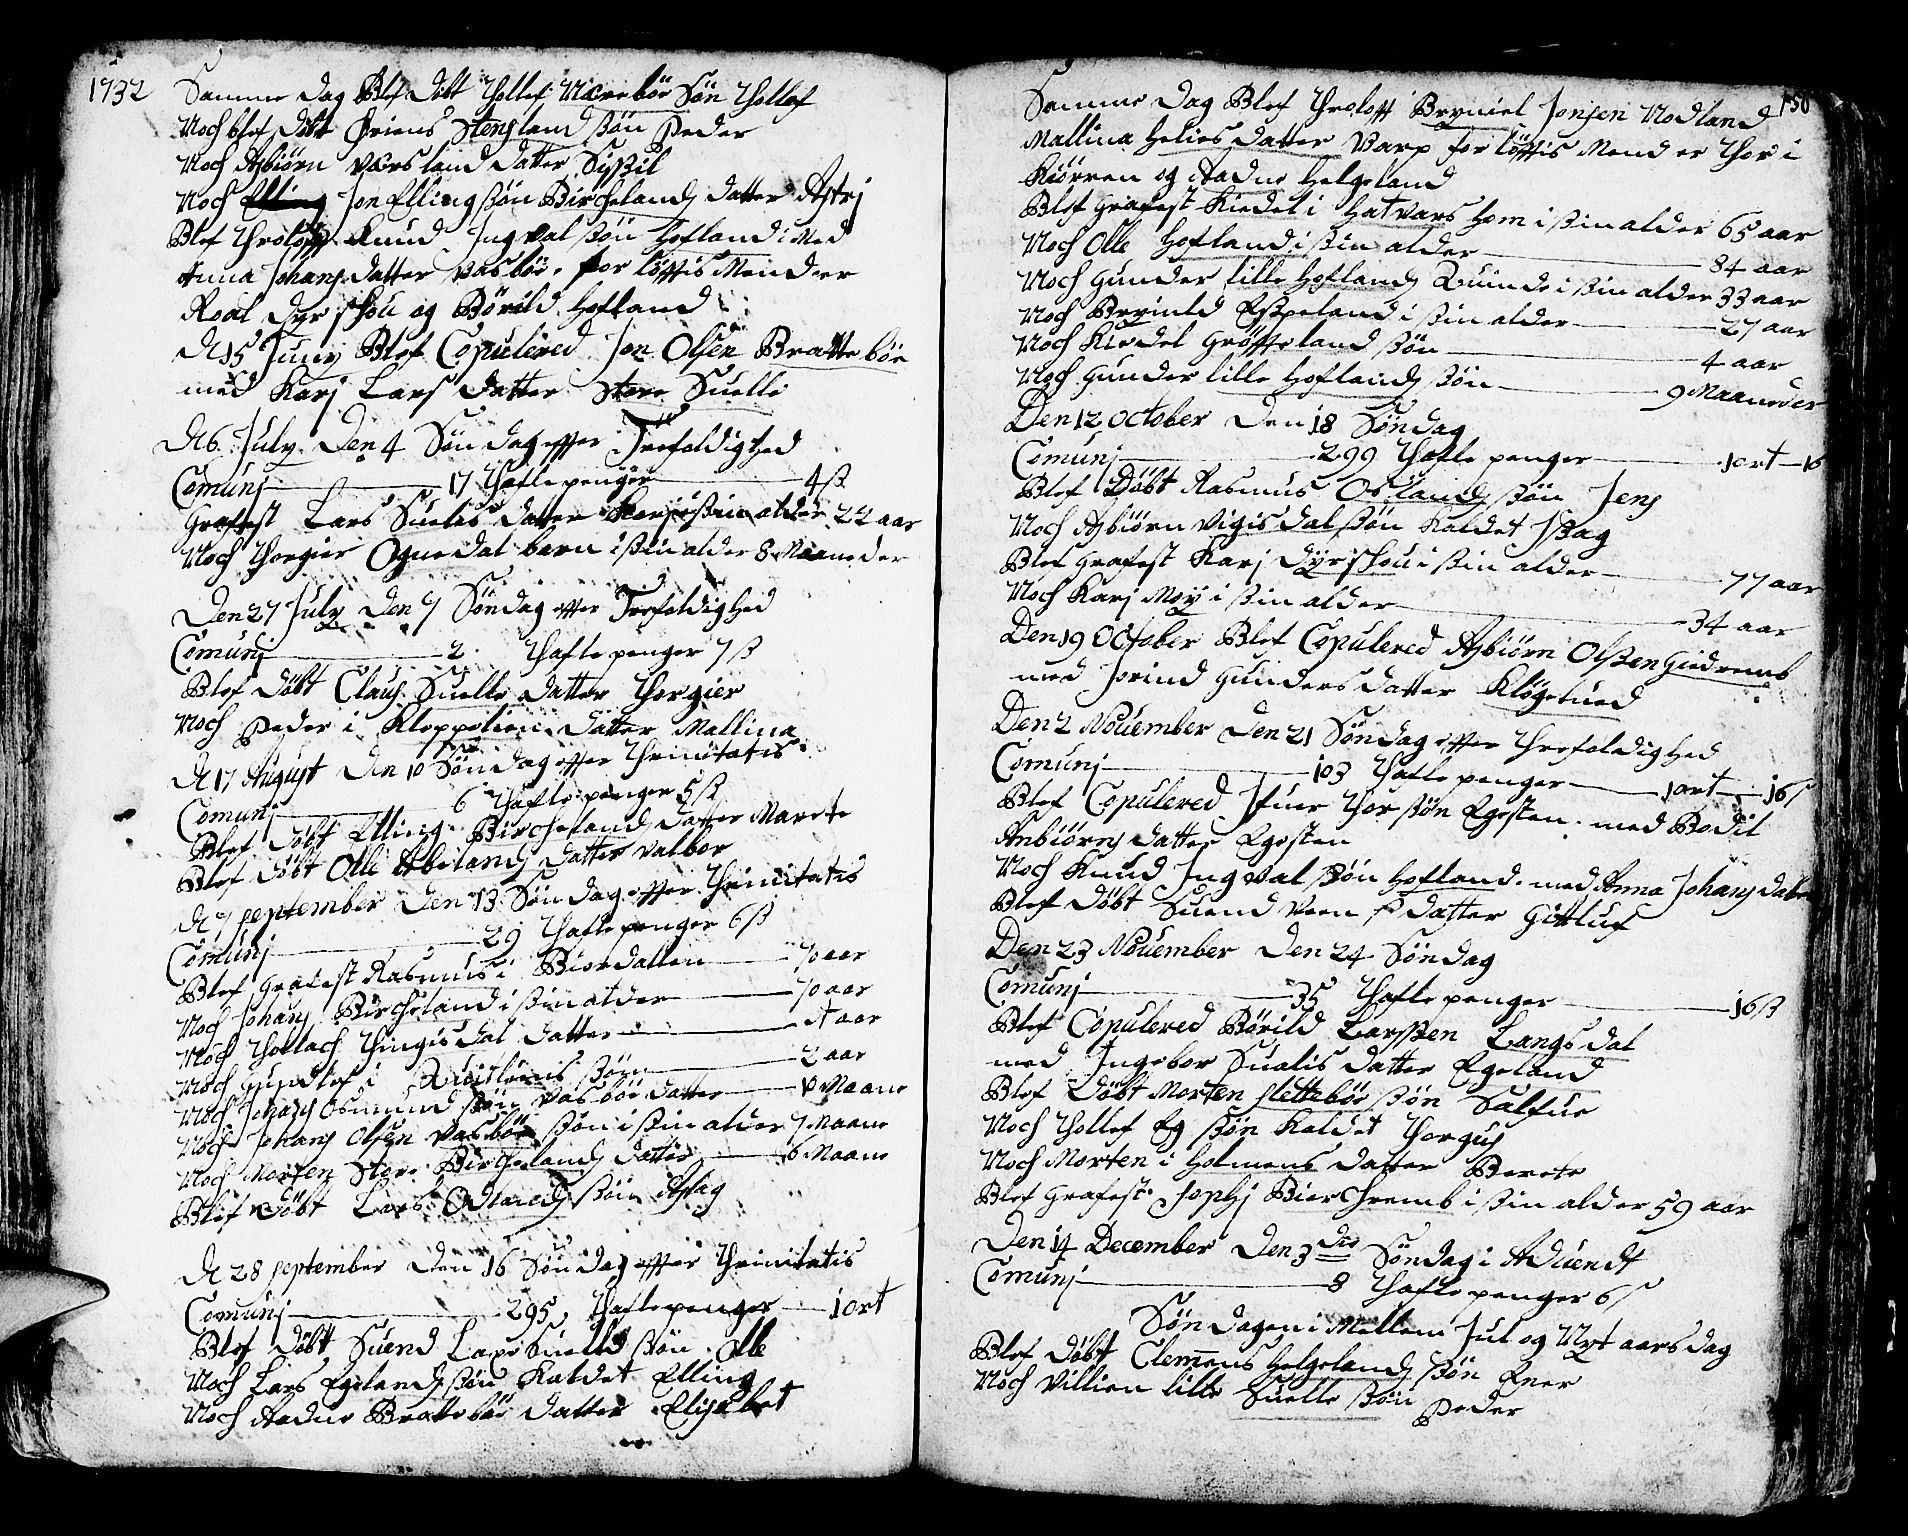 1732
Samme Dag Blef Döbt Tollef Næreböe Sön Tollef
Noch blef Döbt Öriens Stensland ßön Peder
Noch Asbiörn Værsland Datter Sißil
Noch Elling Jon Elling ßön Birchelands Datter Astrj
Blef throlofft Knud Ingval ßön Hofland i Med
Anna Johans Datter Vasböe. for löfftis Mend er
Roal Dyrskou og Börild Hofland
D 15 Juny Blef Copulered Jon Olsen Bratteböe
med Karj Lars Datter Store Suelle
D 6 July Den 4 Söndag effter Trefoldighed
Comunj 17 Tafle penger 4 ß
Grafest Lars Sueles Datter Karj i ßin alder 22 aar
Noch Thorgier Ognedal barn i ßin alder 8 Maaneder
Den 27 July Den 7 Söndag effter Trefoldighed
Comunj 2 Tafle penger 7 ß
Blef Döbt Claus Suelle Datter Thorgier
Noch Peder i Kloppelien Datter Mallina
D 17 August Den 10 Söndag effter Trinitatis
Comunj 6 Tafle penger 5 ß
Blef Döbt Elling Bircheland Datter Marete
Blef Döbt Olle Abelands Datter Valbor
D 7 September Den 13 Söndag effter Trinitatis
Comunj 29 Tafle penger 6 ß
Blef Grafest Rasmus i Biordallen 70 aar
Noch Johans Bircheland i ßin alder 70 aar
Noch Tollach Thingisdal Datter aar
Noch Gundlef i ßön 2 aar
Noch Johans Osmund ßön Vasböe Datter Maane
Noch Johans Olsen Vasböe ßön i ßin alder 7 Maane
Noch Morten Store Birchelands Datter 6 Maane
Blef Döbt Lars Odlands ßön Aslag
D 28 September Den 16 Söndag effter Trinitatis
Comunj 295 Tafle penger 1 ort
Blef Döbt Suend Lars Suelle ßön Olle
Noch Lars Egelands ßön Kaldet Elling
Noch Aadne Bratteböe Datter Elisabet
150
Samme Dag Blef throlofft Bryniel Jonsen Modland
Mallina Helies Datter Varp for löfftis Mend er Thor i
Kiörren og Aadne Helgeland
Blef Grafest Kiedel i Hatvars Hem i ßin alder 65 aar
Noch Olle Hofland i ßin alder 84 aar
Noch Gunder lille Hoflands Quinde i ßin alder 33 aar
Noch Bryinld Eßpeland i ßin alder 27 aar
Noch Kiedel Gröffteland ßön 4 aar
Noch Gunder lille Hoflands ßön 9 Maaneder
Den 12 October Den 18 Söndag
Comunj 299 Tafle penger 1 ort 16
Blef Döbt Rasmus Oslands ßön Jens
Noch Asbiörn Vigisdal ßön Kaldet Isaag
Blef Grafest Karj Dyrskou i ßin alder 77 aar
Noch Karj Moy i ßin alder 34 aar
Den 19 October Blef Copulered Asbiörn Olßen Giedremb
med Jorind Gunders Datter Klögetued
Den 2 November Den 21 Söndag effter Threfoldighed
Comunj 103 Tafle penger 1 ort 16 ß
Blef Copulered Ifuer Thor ßön Egesten med Bodil
Anbiörns Datter Egesten
Noch Knud Ingval ßön Hofland med Anna Johans Dater
Blef Döbt Suend Veen s Datter Gitluf
Den 23 November Den 24 Söndag
Comunj 35 Tafle penger 16 ß
Blef Copulered Börild Larsßen Langsdal
med Ingebor Sualis Datter Egeland
Blef Döbt Morten Sletteböe ßön Salfue
Noch Tollef Eg ßön Kaldet Thorgus
Noch Morten i Holmens Datter Berete
Blef Grafest Sophj Bierchremb i ßin alder 59 aar
Den 14 December Den 3die Söndag i Aduendt
Comunj 8 Tafle penger 6 ß
Söndagen i Mellem Jul og Nyt aarsdag
Blef Döbt Clemens Helgelands ßön Ener
Noch Villien lille Suelle ßön Peder